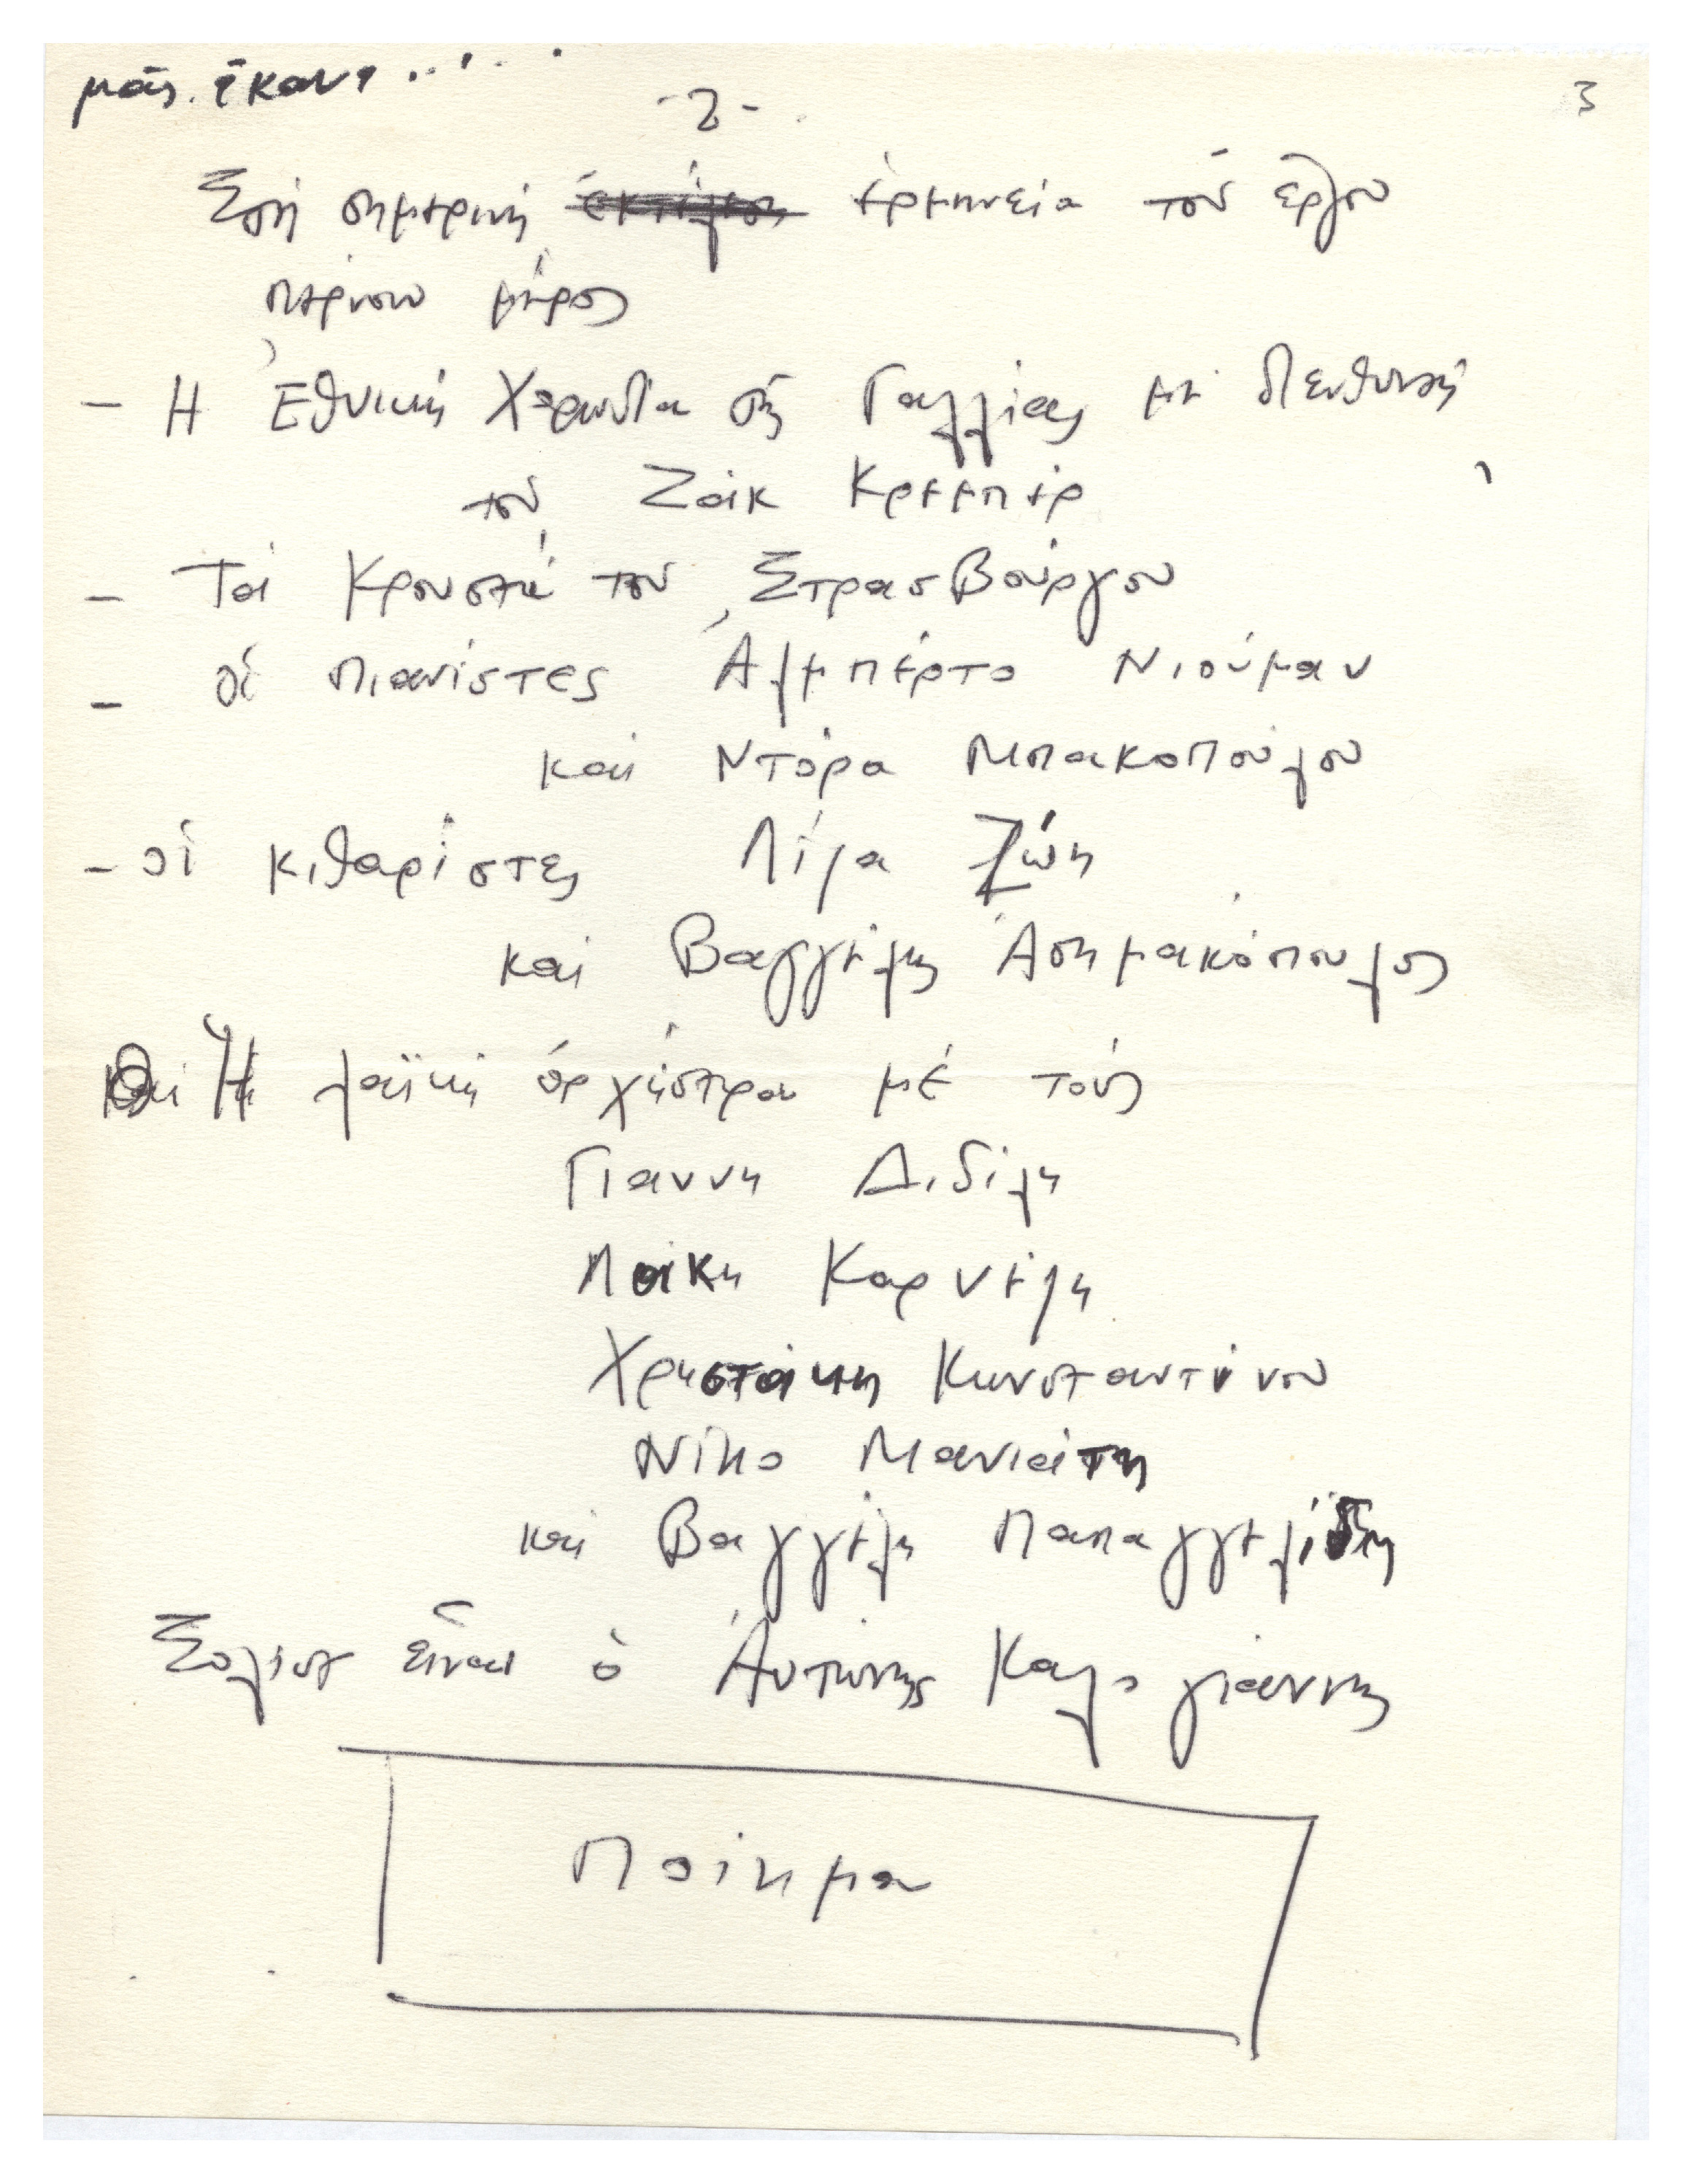 μᾶς ἔκανε...
-2-
3
Στή σημερινή ἐκτέλεση ἑρμηνεία τοῦ ἔργου
παίρνουν μέρος
- Η Ἐθνική Χορωδία τῆς Γαλλίας μέ διευθυντή
τον Ζάκ Κρεμπέρ
- Τά Κρουστά του Στρασβούργου
- οἱ πιανίστες Ἀλμπέρτο Νιούμαν
και Ντόρα Μπακοπούλου
- οἱ κιθαρίστες Λίζα Ζώη
και Βαγγέλης Ἀσημακόπουλος
Η λαϊκή ὀρχήστρα μέ τούς
Γιάννη Διδίλη
Λάκη Καρνέζη
Χρηστάκη Κωνσταντίνου
Νίκο Μανιάτη
και Βαγγέλη Παπαγγελίδη
Σολίστ εἶναι ὁ Ἀντώνης Καλογιάννης
Ποίημα